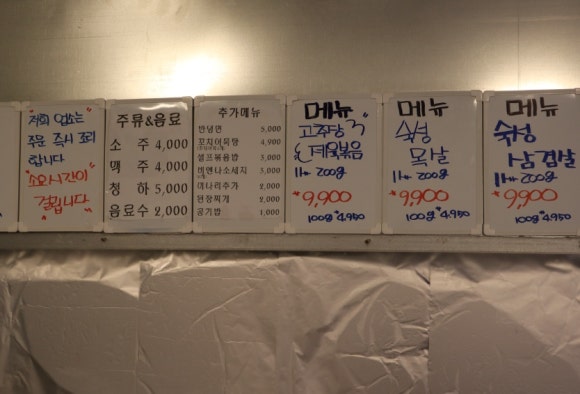 "저희 업소는
주문 즉시 조리
합니다
"소요시간이
걸립니다"
주류&음료
소 주 4,000
맥 주 4,000
청 하 5,000
음료수 2,000
추가메뉴
반냉면 5,000
꼬치어묵탕 4,900
셀프볶음밥 3,000
비엔나소세지 3,000
미나리추가 2,000
된장찌개 2,000
공기밥 1,000
메뉴
고추장
제육볶음
200g
9,900
100g 4,950
메뉴
숙성
목살
200g
9,900
100g 4,950
메뉴
숙성
삼겹살
200g
9,900
100g 4,950